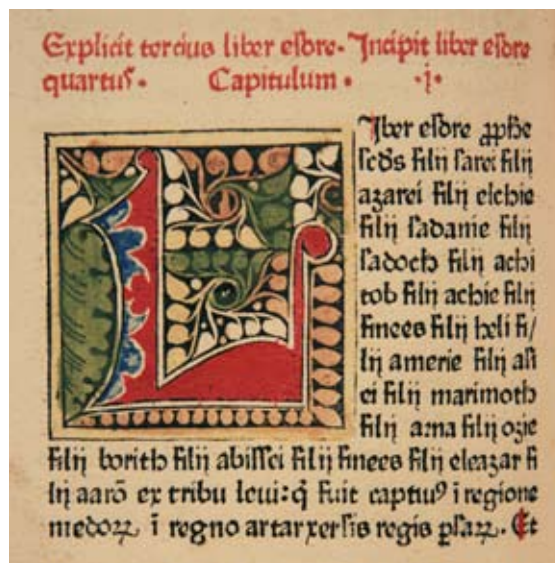 Explicit tercius liber esdre. Incipit liber esdre
quartus. Capitulum .i.
Iber esdre ꝓphe
scd's filij sarei filij
azarei filij elchie
filij sadanie filij
sadoch filij achi
tob filij achie filij
finees filij heli fi/
lij amerie filij asi
ei filij marimoth
filij arna filij ozie
filij borith filij abissei filij finees filij eleazar fi
lij aarō ex tribu leui: q̄ fuit captiuꝰ ī regione
medoꝝ ī regno artarxersis regis ꝑsaꝝ. Et